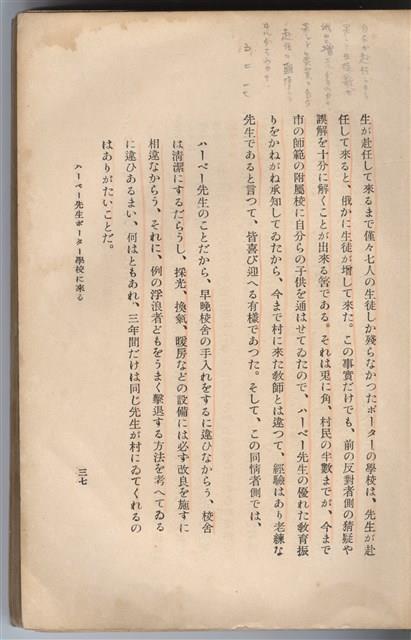 生が赴任して來るまで僅々七人の生徒しか殘らなかつたポーターの學校は、先生が赴
任して來ると、俄かに生徒が增して來た。この事實だけでも、前の反對者側の猜疑や
誤解を十分に解くことが出來る筈である。それは兎に角、村民の半數までが、今まで
市の師範の附屬校に自分らの子供を通はせてゐたので、ハーベー先生の優れた敎育振
りをかねがね承知してゐたから、今まで村に來た敎師とは違つて、經驗はあり老練な
先生であると言つて、皆喜び迎へる有樣であつた。そして、この同情者側では、
ハーベー先生のことだから、早晩校舍の手入れをするに違ひなからう、校舍
は淸潔にするだらうし、採光、換氣、暖房などの設備には必ず改良を施すに
相違なからう、それに、例の浮浪者どもをうまく擊退する方法を考へてゐる
に違ひあるまい、何はともあれ、三年間だけは同じ先生が村にゐてくれるの
はありがたいことだ。
ハーベー先生ポーター學校に來る
三七